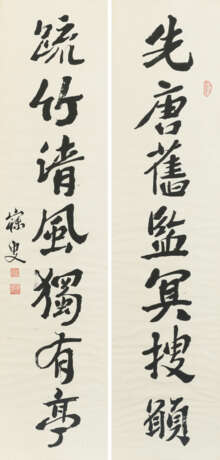 先唐舊監冥搜顧
疏竹清風獨有亭